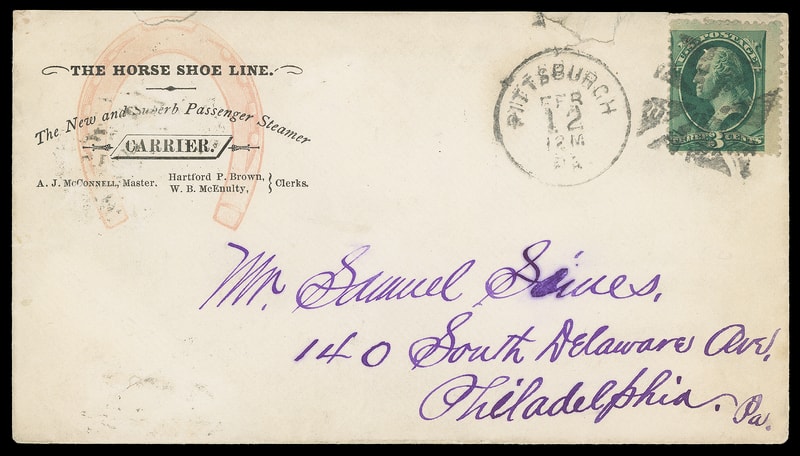 THE HORSE SHOE LINE.
The New and Superb Passenger Steamer
CARRIER.
A. J. McCONNELL, Master. Hartford P. Brown, W. B. McEnulty, } Clerks.
PITTSBURCH
FEB
12
12M
PA
U.S. POSTAGE
THREE 3 CENTS
Mr. Samuel Seines.
140 South Delaware Ave.
Philadelphia. Pa.